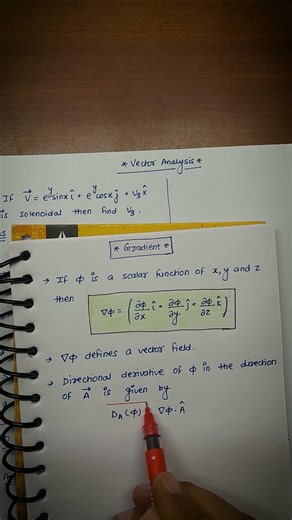 * Vector Analysis *
If V⃗ = e^y sinx î + e^y cosx ĵ + V₃ k̂
is solenoidal then find V₃.
* Gradient *
→ If φ is a scalar function of x, y and z
then
∇φ = (∂φ/∂x î + ∂φ/∂y ĵ + ∂φ/∂z k̂)
→ ∇φ defines a vector field.
→ Directional derivative of φ in the direction
of A⃗ is given by
D_A(φ) = ∇φ · Â